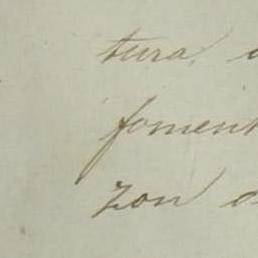 tura,
foment
zon